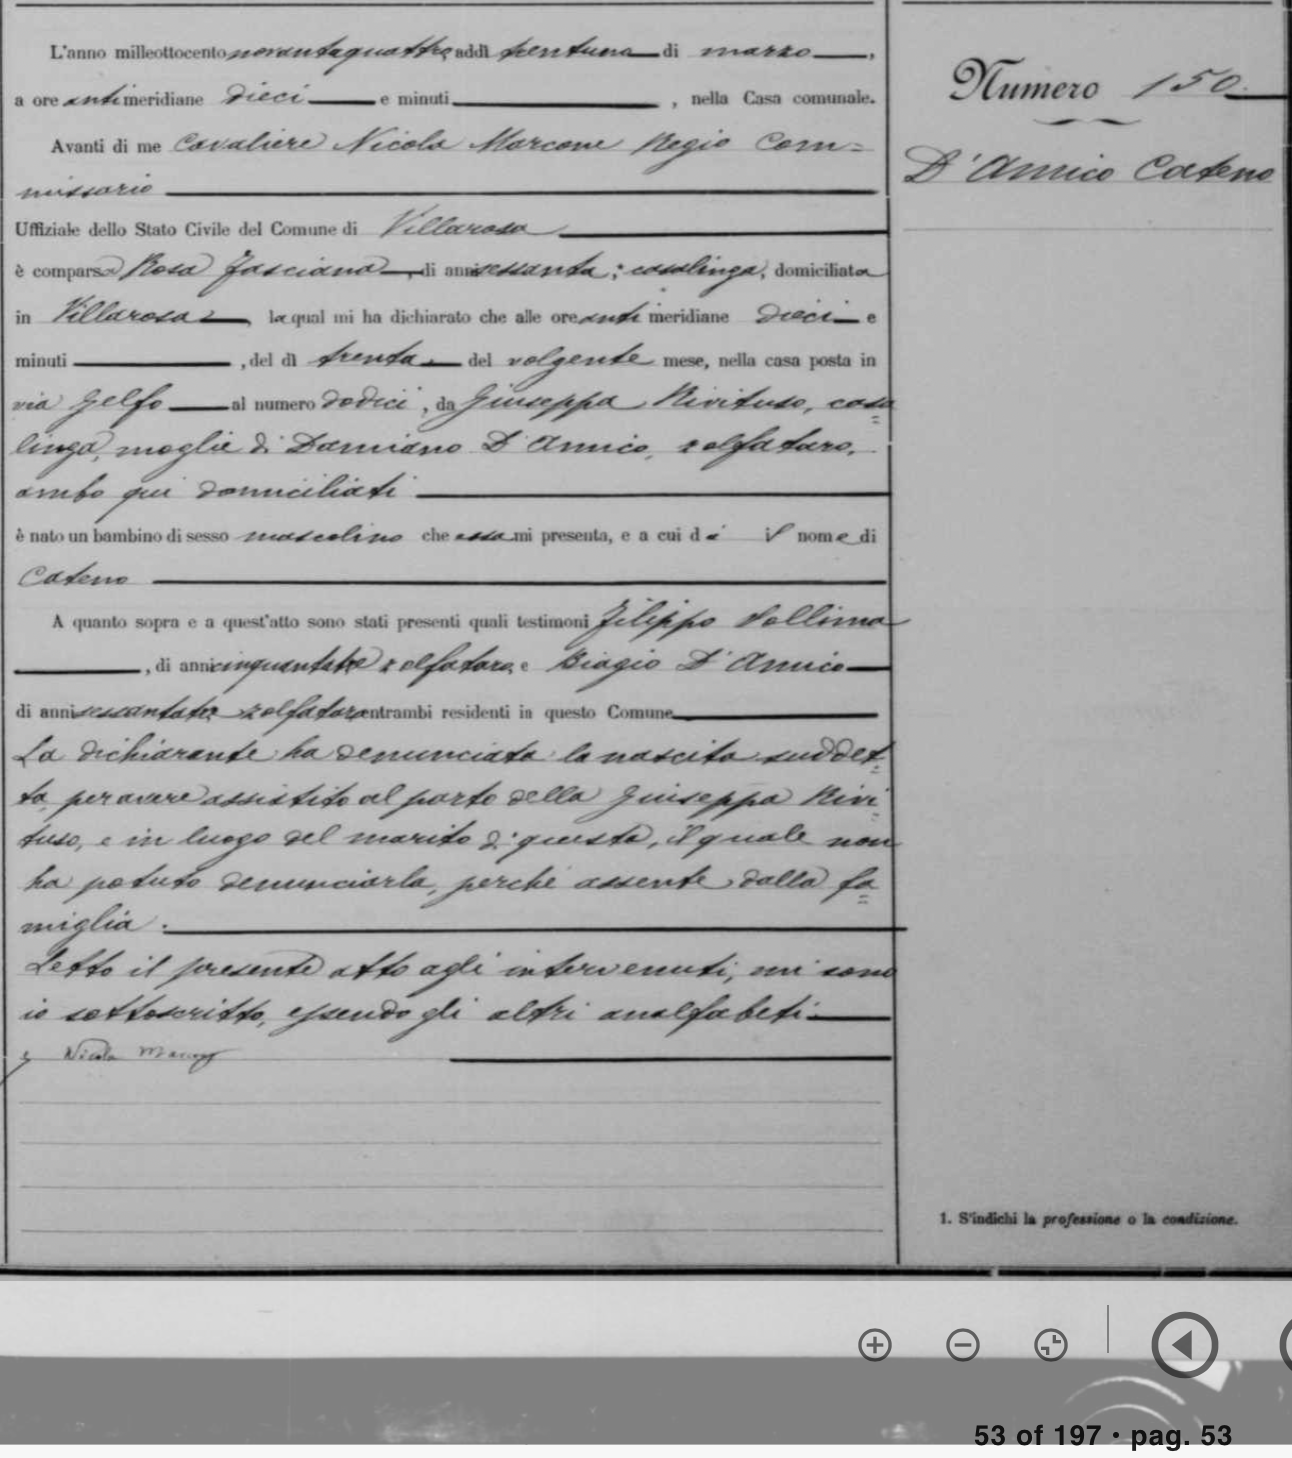 L'anno milleottocento novantaquattro, addì trentuno di marzo,
a ore antimeridiane dieci e minuti , nella Casa comunale.
Avanti di me Cavaliere Nicola Marcone Regio Com=
missario
Uffiziale dello Stato Civile del Comune di Villarosa
è comparsa Rosa Fasciana, di anni sessanta, casalinga, domiciliata
in Villarosa, la qual mi ha dichiarato che alle ore antimeridiane dieci e
minuti , del dì trenta del volgente mese, nella casa posta in
via Gelfo al numero dodici, da Giuseppa Rivituso, casa
linga, moglie di Damiano D'Amico, zolfataro,
ambo qui domiciliati
è nato un bambino di sesso mascolino che essa mi presenta, e a cui dà il nome di
Cateno
A quanto sopra e a quest'atto sono stati presenti quali testimoni Filippo Sollima
, di anni zolfataro, e Biagio D'Amico
di anni zolfataro, entrambi residenti in questo Comune
La dichiarante ha denunciato la nascita suddet=
ta, per avere assistito al parto della Giuseppa Rivi=
tuso, e in luogo del marito di questa, il quale non
ha potuto denunciarla, perché assente dalla fa=
miglia.
Letto il presente atto agli intervenuti, mi sono
io sottoscritto, essendo gli altri analfabeti.
Nicola
Numero 150
D'Amico Cateno
1. S'indichi la professione o la condizione.
53 of 197 • pag. 53